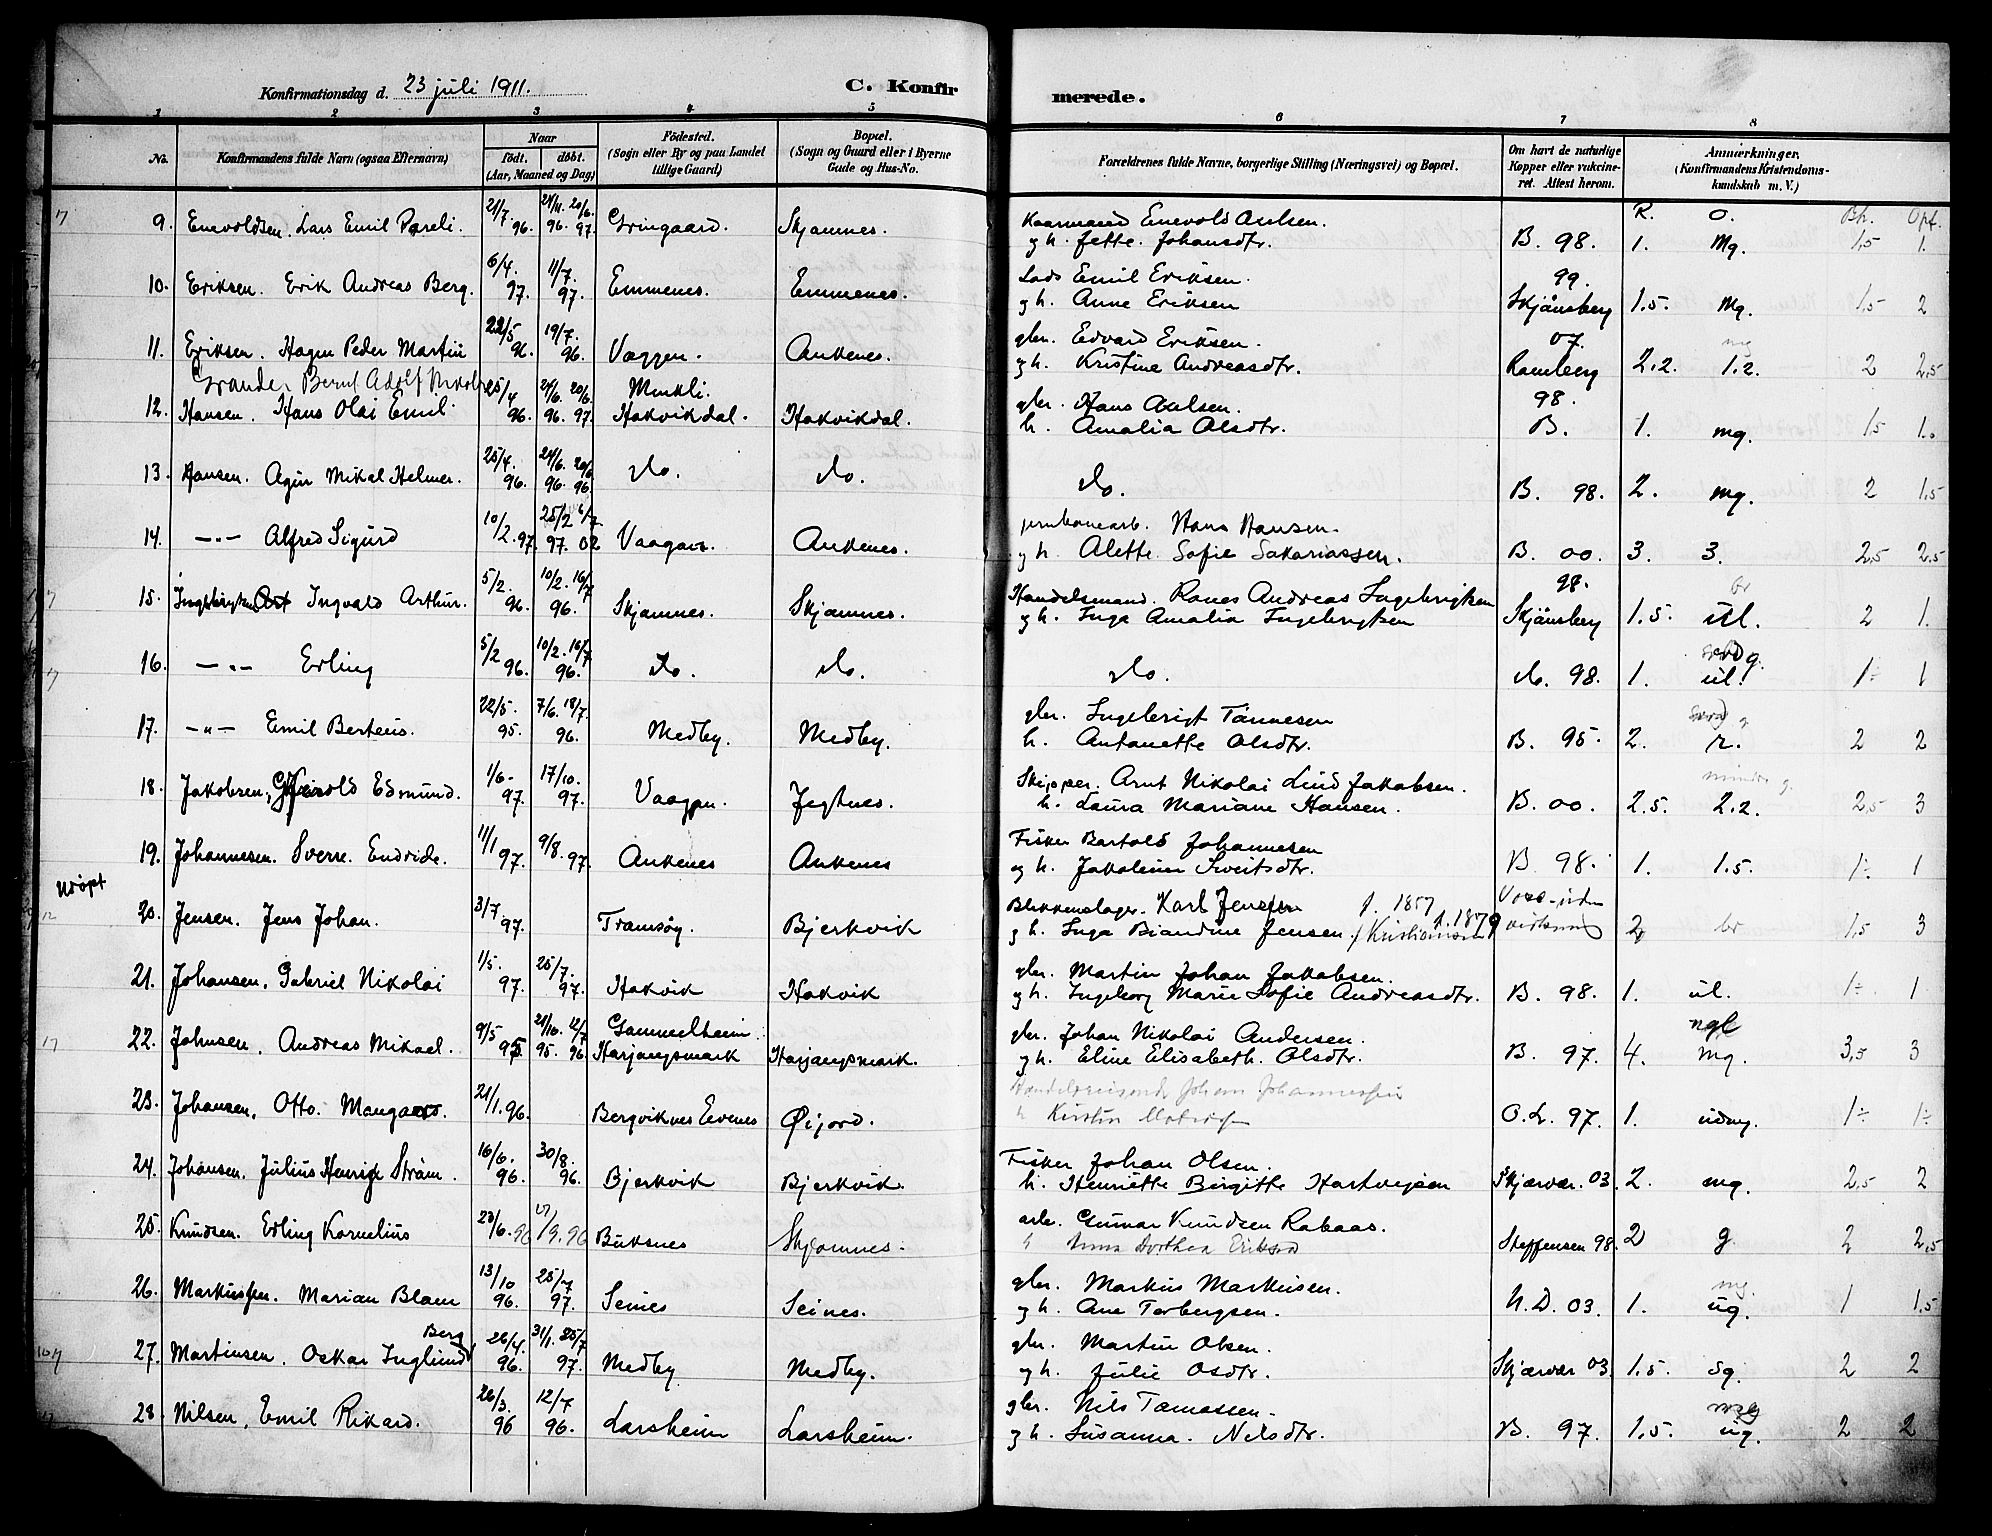 Konfirmationsdag d. 23 juli 1911. C. Konfirmerede.
1 2 3 4 5 6 7 8
No. Konfirmandens fulde Navn (ogsaa Efternavn) Naar födt. döbt. (Aar, Maaned og Dag) Födested. (Sogn eller By og paa Landet tillige Gaard) Bopæl. (Sogn og Gaard eller i Byerne Gade og Hus-No. Forældrenes fulde Navne, borgerlige Stilling (Næringsvei) og Bopæl. Om havt de naturlige Kopper eller vakcineret. Attest herom. Anmærkninger. (Konfirmandens Kristendomskundskab m. V.)
R. O. Bh. Opf.
9. Enevoldsen. Lars Emil Pareli. 21/7. 96. 24/11. 96. 20/6. 97. Gringaard. Skjomnes. Kaarmand Enevold Aulsen. og h. Jette. Johansdtr. B. 98. 1. Mg. 1,5 1.
10. Eriksen. Erik Andreas Berg. 6/4. 97. 11/7. 97. Emmenes. Emmenes. Lods Emil Eriksen. og h. Anne Eriksen 99. Skjånsberg 1.5. Mg. 1,5 2
11. Eriksen. Hagen Peder Martin 22/5 96. 19/7. 96. Vaagen. Ankenes. gbr. Edvard Eriksen. og h. Kristine Andreasdtr. 07. Ramberg 2.2. 1.2. 2 2,5
Grande, Bernt Adolf Merkli.
12. Hansen. Hans Olai Emil. 25/4 96. 24/6. 96. 20/6. 97. Hakvikdal. Hakvikdal. gbr. Hans Aulsen. h. Amalia Olsdtr. 98. B. 1. mg. 1,5 1.
13. Hansen. Agin Mikal Helmer. 25/4. 96. 24/6. 96. 20/6 96. do. do. do. B. 98. 2. mg. 2 1,5
14. —"— Alfred Sigurd 10/2. 97. 25/2 97. 02 Vaagen. Ankenes. jernbanearb. Hans Hansen. og h. Alette Sofie Sakariassen. B. 00. 3. 3. 2,5 2,5
15. Ingebrigtsen Ingvald Arthur. 5/2. 96. 10/2. 16/7 96. Skjomnes. Skjomnes. Handelsmand. Ranes Andreas Ingebrigtsen og h. Inga Amalia Ingebrigtsen 98. Skjånsberg 1.5. utl. 2 1.
16. —"— Erling 5/2 96. 10/2. 16/7 96. do. do. do. do. 98. 1. ul. 1÷ 1
17. —"— Emil Berteus. 22/5. 95. 7/6. 18/7. 96. Medby. Medby. gbr. Ingebrigt Tännesen h. Antonette Olsdtr. B. 95. 2. 2. 2 2
18. Jakobsen, Edmund. 1/6. 97. 17/10. 97. Vaagen. Jegtnes. Skipper. Arnt Nikolai Lind Jakobsen. h. Laura Mariane Hansen. B. 00. 2.5. 2.2. 2,5 3
19. Johannesen. Sverre. Endride. 11/1 97. 9/8. 97. Ankenes Ankenes Fisker Bartold Johannesen og h. Jakobine Sivertsdtr. B 98. 1. 1.5. 1÷ 1
Udöpt
20. Jensen. Jens Johan. 3/7 97. Tromsøy. Bjerkvik Blikkenslager. Karl Jensen f. 1857 og h. Inga Biandine Jensen f. 1879 Kristiansen 2 br 1,5 3
21. Johansen. Gabriel Nikolai 1/5. 97. 25/7. 97. Hakvik Hakvik gbr. Martin Johan Jakobsen. og h. Ingeborg Marie Sofie Andreasdtr. B. 98. 1. ul. 1÷ 1
22. Johnsen. Andreas Mikael. 9/5 95 21/10. 95. 12/7 96 Gammelheim Harjangsmark Harjangsmark. gbr. Johan Nikolai Andersen. og h. Eline Elisabeth. Olsdtr. B. 97. 4. mg. 3,5 3
23. Johansen. Otto. Mangaard. 21/1. 96. Bergviknes Evenes Øijord. Handelsreisende Johan Johannessen h Kirstin O.L. 97. 1. udmg. 1÷ 1÷
24. Johansen. Julius Henrige Ström. 16/6. 96. 30/8. 96. Bjerkvik Bjerkvik. Fisker Johan Olsen. h. Henriette Birgitte Hartvigsen Skjærvær. 03. 2. mg. 2,5 2
25. Knudsen. Erling Kornelius 23/6. 96 /9. 96 Buksnes Skjomnes. arb. Gunnar Knudsen Rabaas. h Anna Dorthea Eriksen Steffensen 98. 2 g 2 2,5
26. Markussen. Marian Blaur 13/10 96. 25/7 97. Seines Seines. gbr. Markus Markusen. og h. Ane Torbergsen. N.D. 03. 1. ug. 1 1,5
27. Martinsen. Oskar Inglund Berg 26/4. 96. 31/1. 25/7 97. Medby Medby. gbr. Martin Olsen. og h. Julie Osdtr. Skjærvær 03. 1.5. Sg. 2 2
28. Nilsen, Emil Rikard. 26/3. 96 12/7 96. Larsheim Larsheim. gbr. Nils Tomassen. og h. Susanna. Nelsdtr. B. 97. 1.5. ug. 2 2